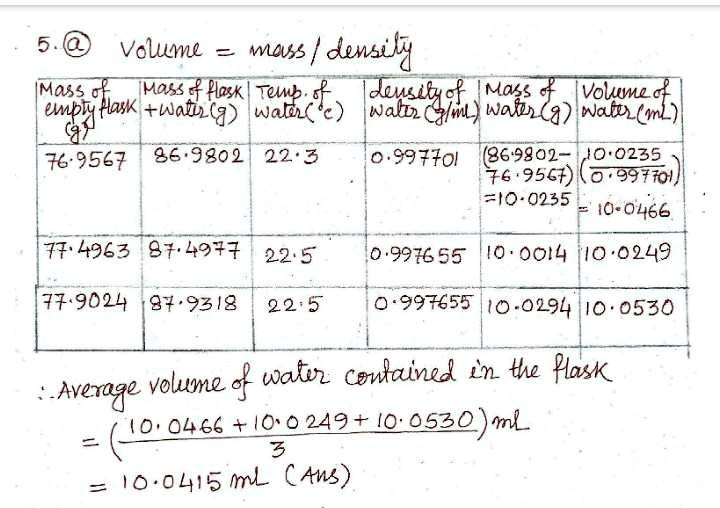 5. ⓐ Volume = mass / density
Mass of empty flask (g) | Mass of flask + water (g) | Temp. of water (°c) | density of water (g/ml) | Mass of water (g) | Volume of water (ml)
76.9567 | 86.9802 | 22.3 | 0.997701 | (86.9802 - 76.9567) = 10.0235 | (10.0235 / 0.997701) = 10.0466
77.4963 | 87.4977 | 22.5 | 0.997655 | 10.0014 | 10.0249
77.9024 | 87.9318 | 22.5 | 0.997655 | 10.0294 | 10.0530
∴ Average volume of water contained in the flask
= (10.0466 + 10.0249 + 10.0530 / 3) ml
= 10.0415 ml (Ans)